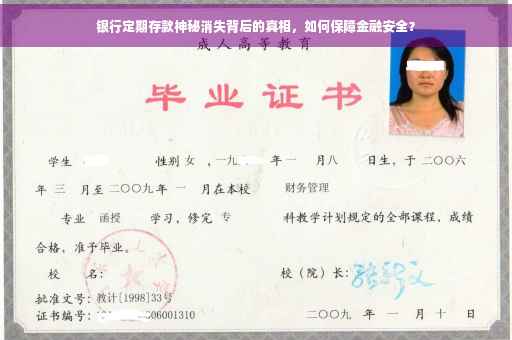 银行定期存款神秘消失背后的真相，如何保障金融安全？
成人高等教育
毕业证书
学生 性别 女 ，一九 年 一 月八 日生，于 二〇〇六
年 三 月至 二〇〇九 年 一 月在本校 财务管理
专业 函授 学习，修完 专 科教学计划规定的全部课程，成绩
合格，准予毕业。
校 名： 校（院）长：
批准文号：教计[1998]33号
证书编号： 06001310 二〇〇九 年 一 月 十 日